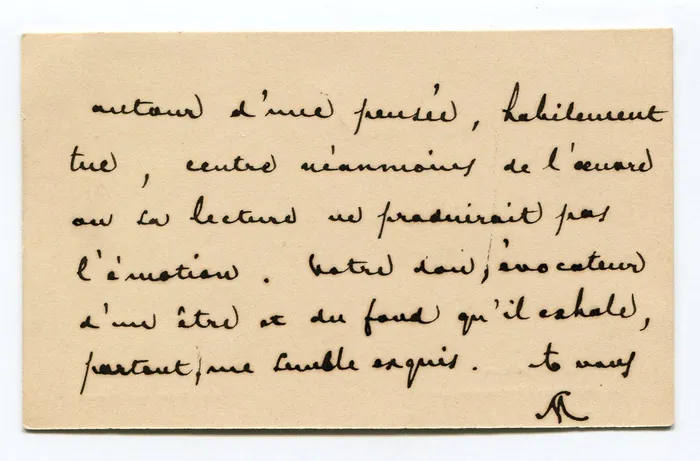 autour d'une pensée, habilement
tue, centre néanmoins de l'œuvre
ou sa lecture ne produirait pas
l'émotion. Votre don, évocateur
d'un être et du fond qu'il exhale,
partout, me semble exquis. A vous